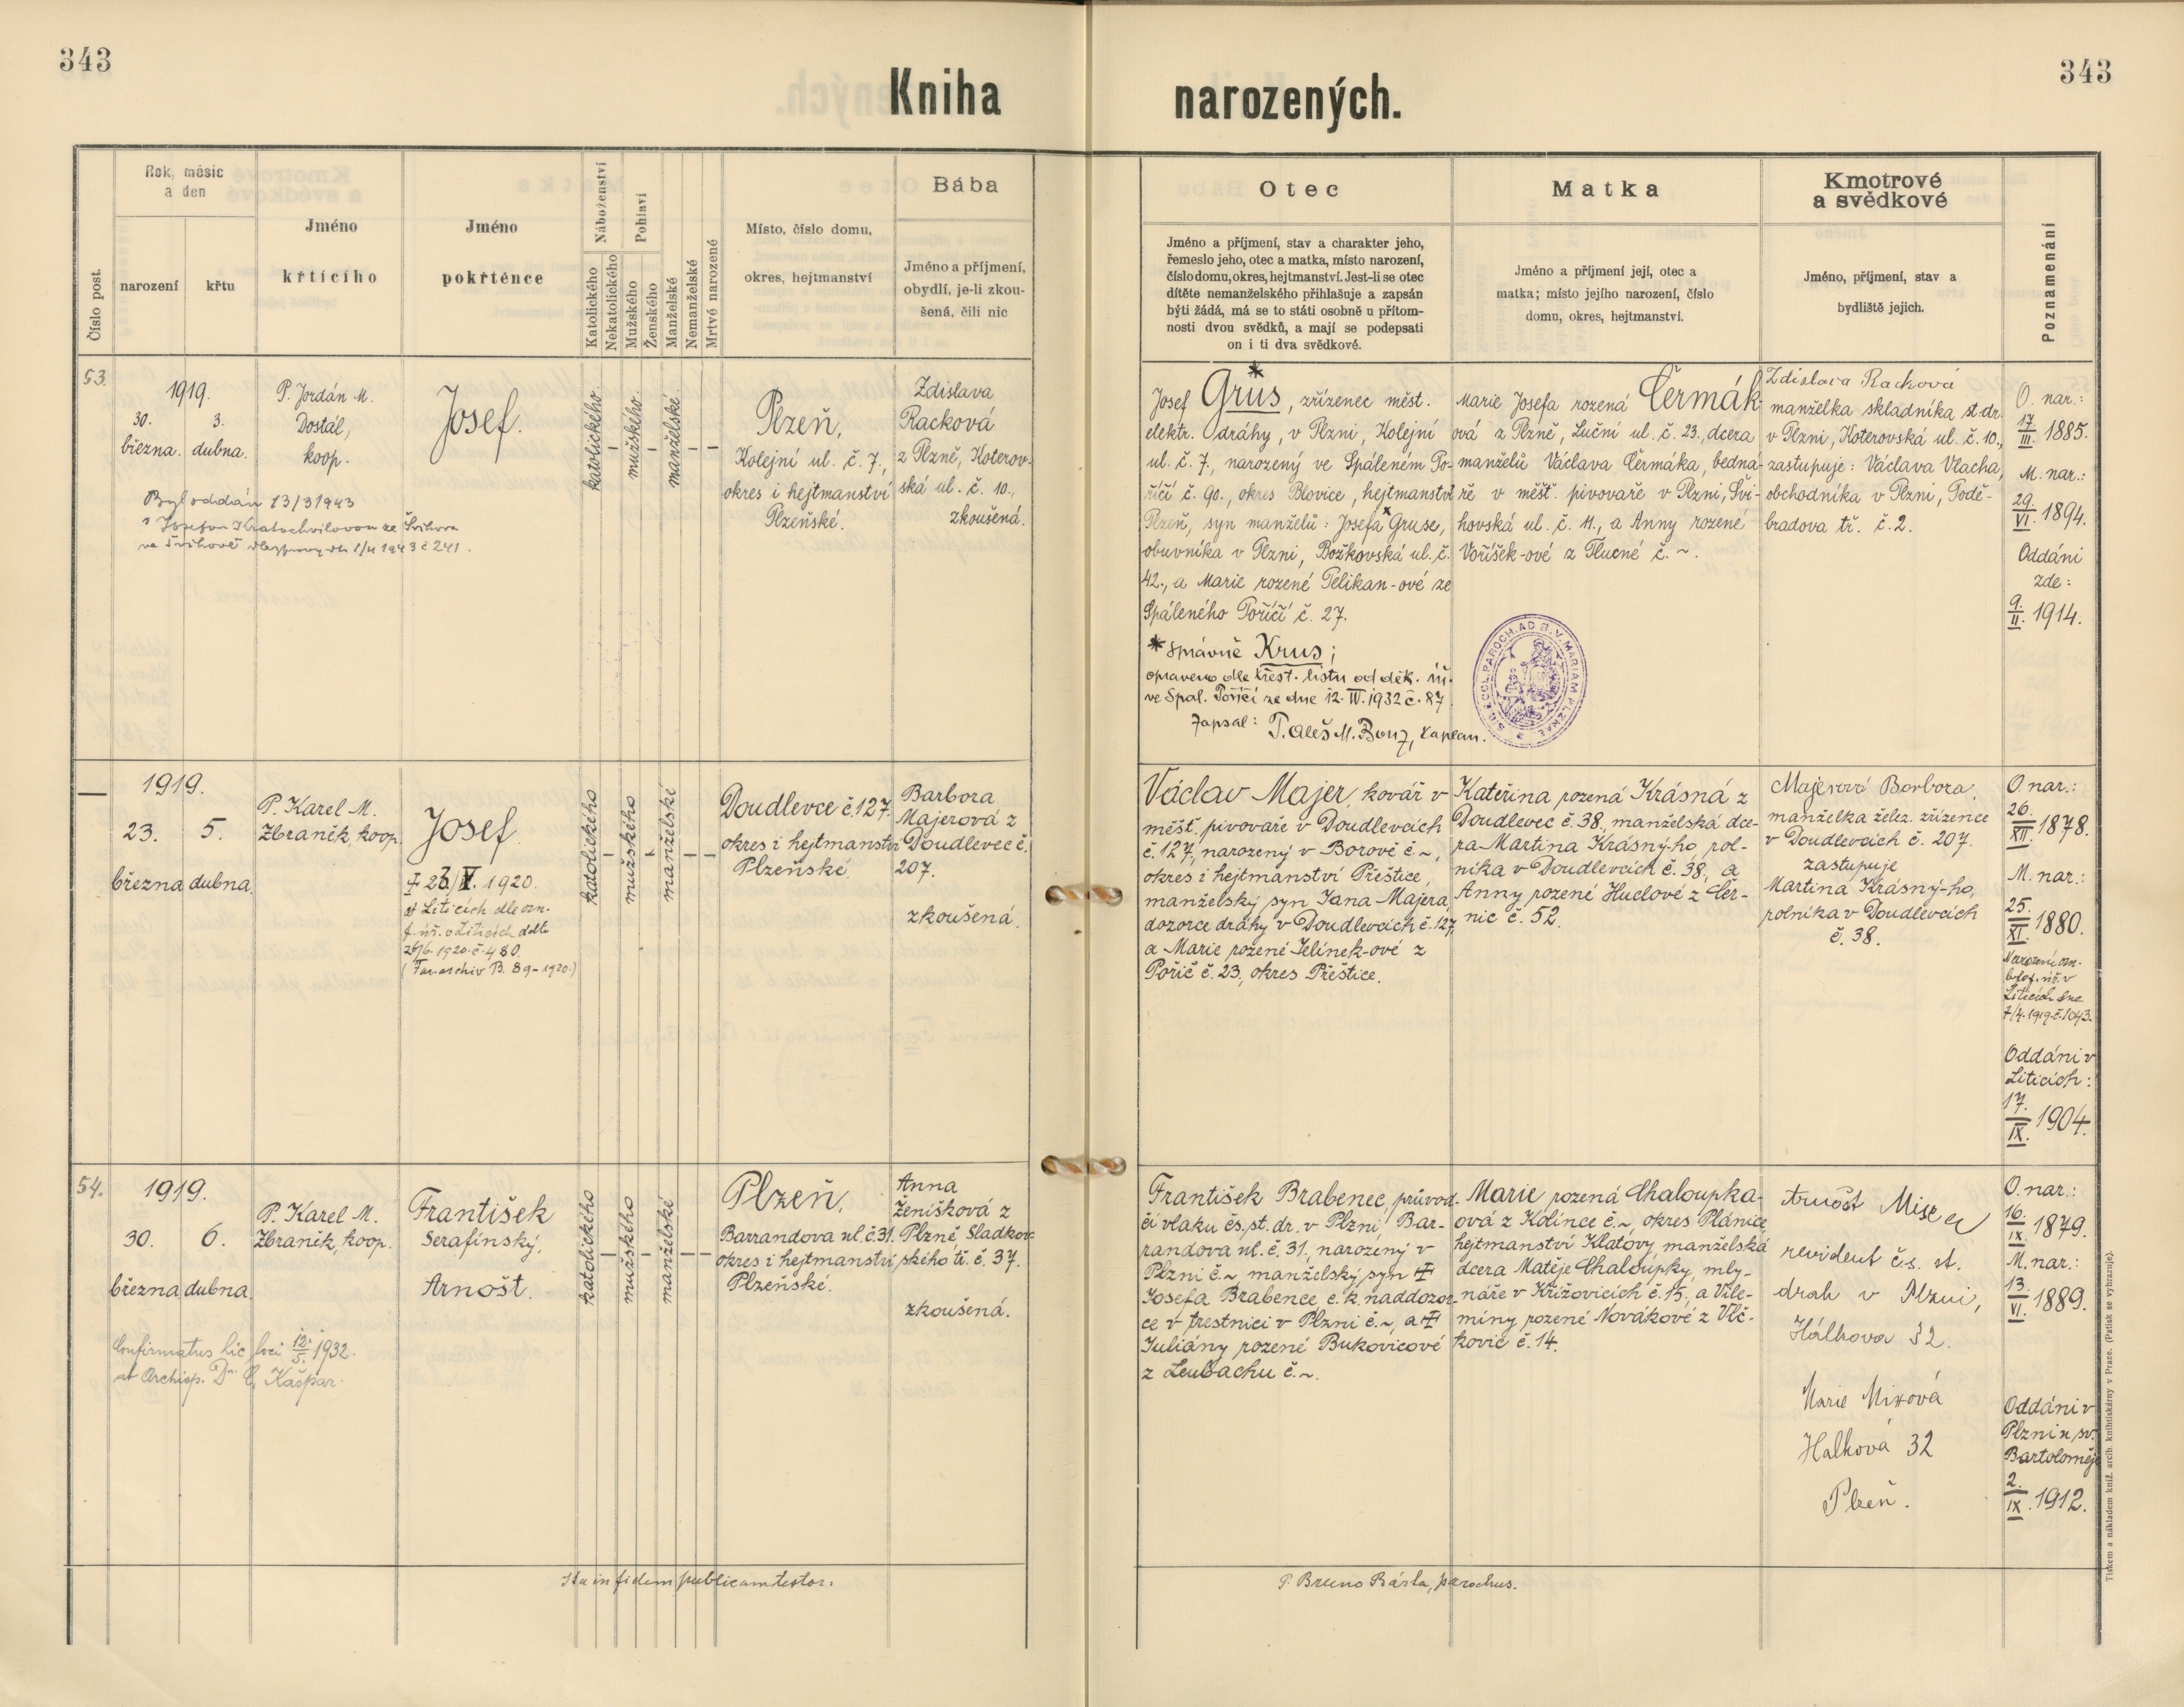 343
343
Kniha
narozených.
Číslo post.
Rok, měsíc
a den
narození
křtu
Jméno
křtícího
Jméno
pokřtěnce
Náboženství
Katolického
Nekatolického
Pohlaví
Mužského
Ženského
Manželské
Nemanželské
Mrtvě narozené
Místo, číslo domu,
okres, hejtmanství
Bába
Jméno a příjmení,
obydlí, je-li zkou-
šená, čili nic
Otec
Jméno a příjmení, stav a charakter jeho,
řemeslo jeho, otec a matka, místo narození,
číslo domu, okres, hejtmanství. Jest-li se otec
dítěte nemanželského přihlašuje a zapsán
býti žádá, má se to státi osobně u přítom-
nosti dvou svědků, a mají se podepsati
on i ti dva svědkové.
Matka
Jméno a příjmení její, otec a
matka; místo jejího narození, číslo
domu, okres, hejtmanství.
Kmotrové
a svědkové
Jméno, příjmení, stav a
bydliště jejich.
Poznamenání
53.
1919.
30. 3.
března. dubna.
P. Jordán M.
Dostál,
koop.
Josef.
Byl oddán 13/3 1943
s Josefou Kratochvilovou ze Švihova
ve Švihově 1943 č 241.
katolického.
–
mužského.
–
manželské.
–
–
Plzeň,
Kolejní ul. č. 7.,
okres i hejtmanství
Plzeňské.
Zdislava
Racková
z Plzně, Koterov-
ská ul. č. 10.,
zkoušená.
*
Josef Grus, zřízenec měst.
elektr. dráhy, v Plzni, Kolejní
ul. č. 7., narozený ve Spáleném Po-
říčí č. 90., okres Blovice, hejtmanství
Plzeň, syn manželů: Josefa *Gruse,
obuvníka v Plzni, Božkovská ul. č.
42., a Marie rozené Pelikan-ové ze
Spáleného Poříčí č. 27.
* správně Krus;
opraveno dle křest. listu od děk. úř.
ve Spal. Poříčí ze dne 12. IV. 1932 č. 87
Zapsal: P. Aleš M. Bonz, kaplan.
Marie Josefa rozená Čermák-
ová z Plzně, Luční ul. č. 23., dcera
manželů Václava Čermáka, bedná-
ře v měšť. pivovaře v Plzni, Švi-
hovská ul. č. 11., a Anny rozené
Voříšek-ové z Tlucné č. ~.
Zdislava Racková
manželka skladníka st. dr.
v Plzni, Koterovská ul. č. 10.,
zastupuje: Václava Vlacha,
obchodníka v Plzni, Podě-
bradova tř. č. 2.
O. nar.:
17./III. 1885.
M. nar.:
29./VI. 1894.
Oddáni
zde:
9./II. 1914.
—
1919.
23. 5.
března dubna.
P. Karel M.
Zbraněk, koop.
Josef.
† 23/V. 1920.
v Liticích dle ozn.
f. úř. v Liticích ddto
26/6. 1920. č. 480.
(Far. archiv B. 89-1920.)
katolického
–
mužského
–
manželské
–
–
Doudlevce č. 127.
okres i hejtmanství
Plzeňské.
Barbora
Majerová z
Doudlevec č.
207.
zkoušená.
Václav Majer, kovář v
měšť. pivovaře v Doudlevcích
č. 127, narozený v Borově č. ~,
okres i hejtmanství Přeštice,
manželský syn Jana Majera,
dozorce dráhy v Doudlevcích č. 127,
a Marie rozené Jelínek-ové z
Poříč č. 23., okres Přeštice.
Kateřina rozená Krásná z
Doudlevec č. 38., manželská dce-
ra Martina Krásný-ho, rol-
níka v Doudlevcích č. 38., a
Anny rozené Huclové z Čer-
nic č. 52.
Majerová Barbora,
manželka želez. zřízence
v Doudlevcích č. 207.
zastupuje
Martina Krásný-ho,
rolníka v Doudlevcích
č. 38.
O. nar.:
26./XII. 1878.
M. nar.:
25./XI. 1880.
Narození ozn.
bylo f. úř. v
Liticích dne
7/4. 1919. č. 1043.
Oddáni v
Liticích:
17./IX. 1904.
54.
1919.
30. 6.
března dubna.
P. Karel M.
Zbraněk, koop.
František
Serafínský,
Arnošt.
Confirmatus hic loci 12./5. 1932.
ab Archiep. Dr. C. Kašpar.
katolického
–
mužského
–
manželské
–
–
Plzeň,
Barrandova ul. č. 31.
okres i hejtmanství
Plzeňské.
Anna
Ženíšková z
Plzně, Sladkov-
ského tř. č. 37.
zkoušená.
František Brabenec, průvod-
čí vlaku čs. st. dr. v Plzni, Bar-
randova ul. č. 31, narozený v
Plzni č. ~, manželský syn †
Josefa Brabence c. k. naddozor-
ce v trestnici v Plzni č. ~, a †
Juliány rozené Bukovicové
z Leubachu č. ~.
Marie rozená Chaloupka-
ová z Kolínce č. ~, okres Plánice
hejtmanství Klatovy, manželská
dcera Matěje Chaloupky, mly-
náře v Křižovicích č. 15, a Vile-
míny rozené Novákové z Vlč-
kovic č. 14.
Arnošt
revident čs. st.
drah v Plzni,
Hálkova 32.
Marie Mixová
Halkova 32
Plzeň.
O. nar.:
16./IX. 1879.
M. nar.:
13./VI. 1889.
Oddáni v
Plzni u sv.
Bartoloměje
2./IX. 1912.
Ita in fidem publicam testor:
P. Bruno Bárta, parochus.
Tiskem a nákladem kníž. arcib. knihtiskárny v Praze. (Patisk se vyhrazuje).